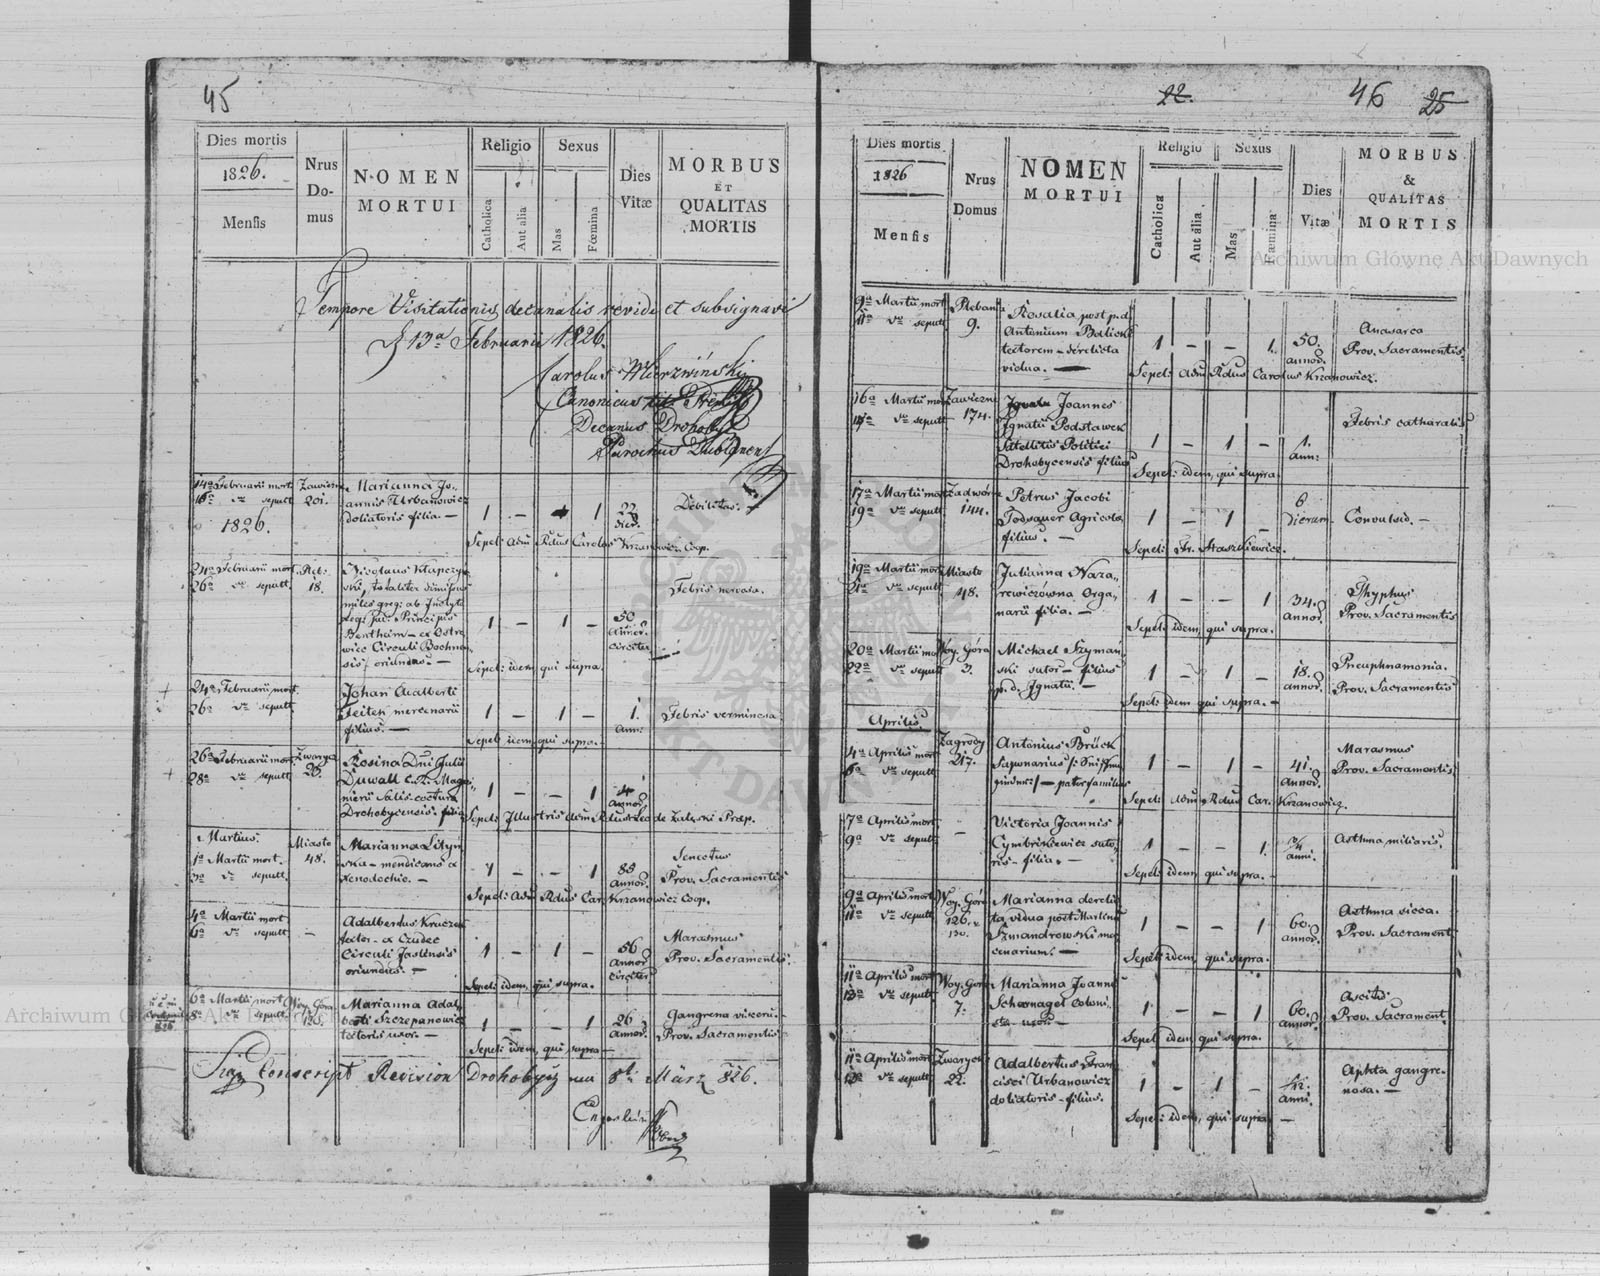 45
Dies mortis
1826.
Mensis
Nrus
Do-
mus
NOMEN
MORTUI
Religio
Catholica
Aut alia
Sexus
Mas
Fœmina
Dies
Vitæ
MORBUS
ET
QUALITAS
MORTIS
Tempore Visitationis decanalis revidi et subsignavi
13a Februarii 1826.
Carolus
Canonicus
Decanus
Parochus
14a Februarii mort.
16a do sepult.
1826.
201.
Marianna Jo-
annis Urbanowicz
doliatoris filia. —
1 — 1
22
dier.
Debilitas.
Sepel: Adm Rdus Carolus Krzanowicz Coop.
24a Februarii mort.
26a do sepult.
18.
miles greg: ab
Bentheim — ex Ostro
wiec Circuli Bochnen
sis oriundus. —
1 — 1 —
50
annor.
circiter
Febris nervosa.
Sepel: idem, qui supra.
24a Februarii mort.
26a do sepult.
Johan Adalberti
mercenarii
filius. —
1 — 1 —
1.
ann:
Febris verminosa
Sepel: idem, qui supra. —
26a Februarii mort.
28a do sepult.
Zwarycz
25.
Rosina Dni Julii
Duwall
Salis coctura
Drohobycensis filia
1 — — 1
4
annor.
Sepel: Illustris dom Rdus Leo de Zalęski Præp.
Martius.
1a Martii mort.
3a do sepult.
Miasto
48.
Marianna Lityn
ska — mendicans ex
Xenodochio. —
1 — — 1
85
annor.
Senectus
Prov. Sacramentis
Sepel: Adm Rdus Car. Krzanowicz Coop.
4a Martii mort
6a do sepult
—
Adalbertus Kruczek
tector — ex Czudec
Circuli Jaslensis
oriundus. —
1 — 1 —
56
annor.
circiter
Marasmus
Prov. Sacramentis.
Sepel: idem, qui supra.
6a Martii mort
8a do sepult.
Woy. Góra
Marianna Adal
berti Szczepanowicz
textoris uxor. —
1 — — 1
26
annor.
Gangrena viscerum
Prov. Sacramentis
Sepel: idem, qui supra —
Conscript Revision Drohobycz am 8t. März 826.
22.
46
25
Dies mortis
1826
Mensis
Nrus
Domus
NOMEN
MORTUI
Religio
Catholica
Aut alia
Sexus
Mas
Fæmina
Dies
Vitæ
MORBUS
&
QUALITAS
MORTIS
9a Martii mort
11a do sepult
Plebania
9.
Rosalia post p.d.
Antonium Balicki
tectorem — derelicta
vidua. —
1 — — 1.
50.
annor.
Anasarca
Prov. Sacramentis.
Sepel: Adm Rdus Carolus Krzanowicz.
16a Martii mort
do sepult.
Zawiezna
174.
Joannes
Ignatii Podstawek
Satellitis Politici
Drohobycensis filius
1 — 1 —
1.
ann:
Febris catharalis
Sepel: idem, qui supra.
17a Martii mort
19a do sepult
Zadwórna
144.
Petrus Jacobi
Agricolæ
filius. —
1 — 1 —
6
dierum
Convulsio. —
Sepel: Fr. Staszkiewicz.
19a Martii mort
21a do sepult.
Miasto
48.
Julianna Naza-
rewiczówna Orga-
narii filia. —
1 — — 1
34.
annor.
Thyphus
Prov. Sacramentis
Sepel: idem, qui supra.
20a Martii mort
22a do sepult
Woy. Góra
3.
Michael Szyman
ski sutor — filius
p. d. Ignatii. —
1 — 1 —
18.
annor.
Pneuphnamonia.
Prov. Sacramentis
Sepel: idem, qui supra. —
Aprilis
4a Aprilis mort
6a do sepult
Zagrody
217.
Antonius Brück
Saponarius
— pater familias
1 — 1 —
41.
annor.
Marasmus
Prov. Sacramentis
Sepel: Adm Rdus Car. Krzanowicz.
7a Aprilis mort
9a do sepult
—
Victoria Joannis
Cymbrikiewicz suto-
ris — filia. —
1 — — 1.
anni.
Asthma miliaris.
Sepel: idem, qui supra. —
9a Aprilis mort
11a do sepult
Woy. Góra
126.
130.
Marianna derelic
ta vidua post Martinum
Szmandrowski mer
cenarium. —
1 — — 1
60.
annor.
Asthma sicca.
Prov. Sacrament.
Sepel: idem, qui supra.
11a Aprilis mort
13a do sepult.
Woy. Góra
7.
Marianna Joannis
Schernagel coloni
stæ uxor —
1 — — 1
60.
annor.
Ascitis
Prov. Sacrament.
Sepel: idem, qui supra.
11a Aprilis mort
do sepult
Zwarycz
22.
Adalbertus Fran
cisci Urbanowicz
doliatoris — filius.
1 — 1 —
anni.
Aphta gangre-
nosa. —
Sepel: idem, qui supra —
Archiwum Główne Akt Dawnych
Archiwum Główne Akt Dawnych